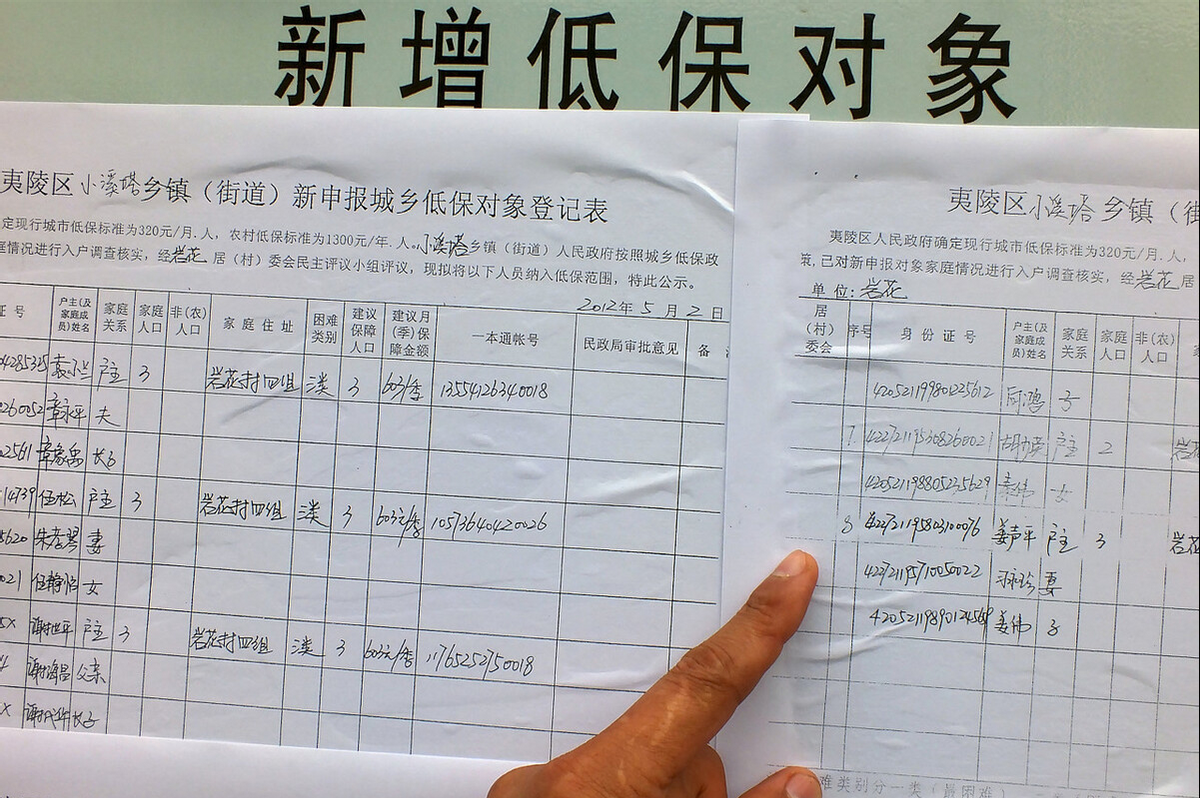 新增低保对象
夷陵区小溪塔乡镇（街道）新申报城乡低保对象登记表
定现行城市低保标准为320元/月.人，农村低保标准为1300元/年.人。小溪塔乡镇（街道）人民政府按照城乡低保政
庭情况进行入户调查核实，经岩花居（村）委会民主评议小组评议，现拟将以下人员纳入低保范围，特此公示。
2012年5月2日
证号 户主(及家庭成员)姓名 家庭关系 家庭人口 非(农)人口 家庭住址 困难类别 建议保障人口 建议月(季)保障金额 一本通帐号 民政局审批意见 备
户主 3 岩花村四组 3 603/季 13554126340018
夫
2561 长子
14739 伍松 户主 3 岩花村四组 3 603元/季 10573640420026
8620 妻
021 女
5X 户主 3 岩花村四组 3 603元/季 11765252750018
父亲
X 长子
夷陵区小溪塔乡镇（街
夷陵区人民政府确定现行城市低保标准为320元/月.人，
策,已对新申报对象家庭情况进行入户调查核实，经岩花居
单位：岩花
居（村）委会 序号 身份证号 户主(及家庭成员)姓名 家庭关系 家庭人口 非(农)人口
420521199801225612 子
7. 422721195308260021 户主 2 岩花
420521198805235629 女
8 422721195803100076 姜声平 户主 3 岩花
422721195710050022 妻
420521198901124569 姜伟 子
难类别分一类（最困难）